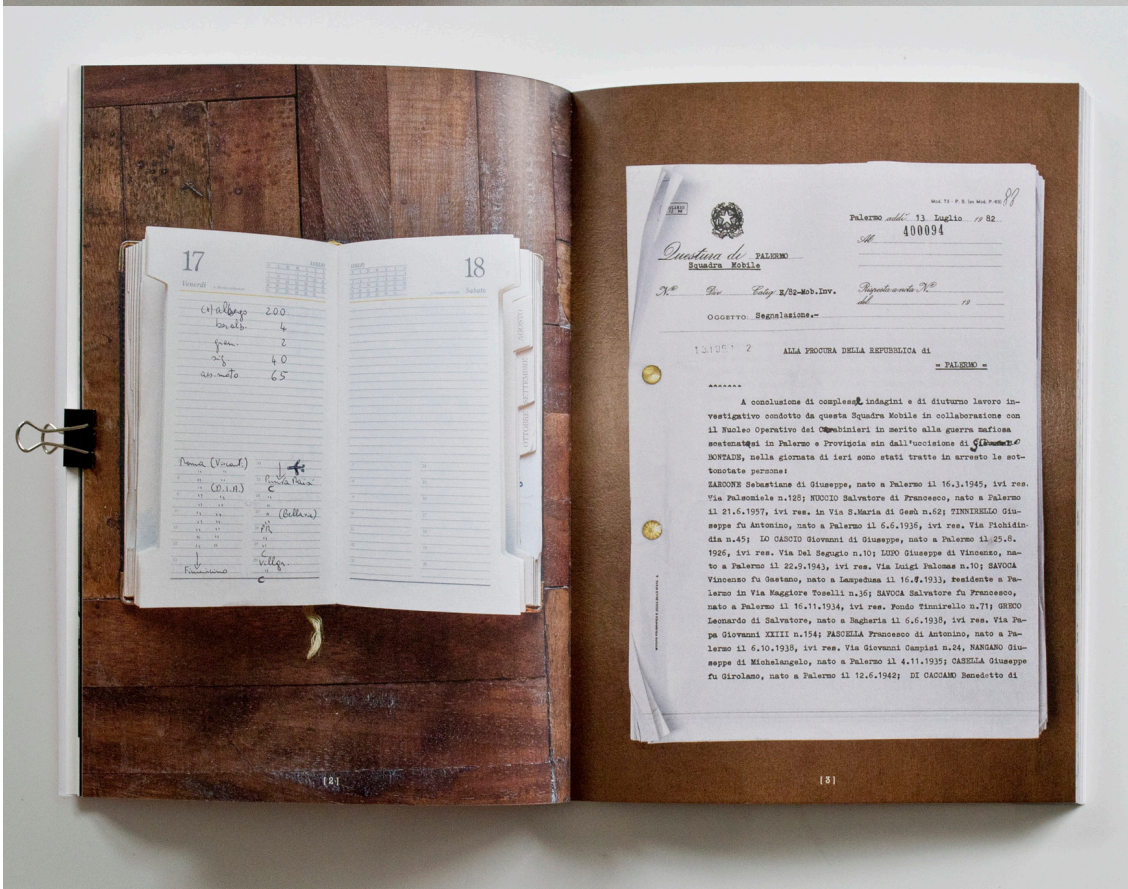 17
Venerdì
18
Sabato
LUGLIO
AGOSTO
SETTEMBRE
OTTOBRE
(+) albergo 200
4
2
sig. 40
65
Roma (Vivenit.)
" "
" (D.I.A.)
" "
" "
Fiumicino
Punta Raisi
C
" (Bellava)
PR
C
C
[2]
Mod. 73 - P. S. (ex Mod. P. 43) 88
Palermo addì 13 Luglio 1982
Al 400094
Questura di PALERMO
Squadra Mobile
N.º Div. Categ. E/82-Mob.Inv. Risposta a nota N.º
del 19
OGGETTO: Segnalazione.-
ALLA PROCURA DELLA REPUBBLICA di
= PALERMO =
A conclusione di complesse indagini e di diuturno lavoro in-
vestigativo condotto da questa Squadra Mobile in collaborazione con
il Nucleo Operativo dei Carabinieri in merito alla guerra mafiosa
scatenatasi in Palermo e Provincia sin dall'uccisione di
BONTADE, nella giornata di ieri sono stati tratte in arresto le sot-
tonotate persone:
ZARCONE Sebastiano di Giuseppe, nato a Palermo il 16.3.1945, ivi res.
Via Falsomiele n.128; NUCCIO Salvatore di Francesco, nato a Palermo
il 21.6.1957, ivi res. in Via S.Maria di Gesù n.62; TINNIRELLO Giu-
seppe fu Antonino, nato a Palermo il 6.6.1936, ivi res. Via Fichidin-
dia n.45; LO CASCIO Giovanni di Giuseppe, nato a Palermo il 25.8.
1926, ivi res. Via Del Segugio n.10; LUPO Giuseppe di Vincenzo, na-
to a Palermo il 22.9.1943, ivi res. Via Luigi Palomes n.10; SAVOCA
Vincenzo fu Gaetano, nato a Lampedusa il 16.7.1933, residente a Pa-
lermo in Via Maggiore Toselli n.36; SAVOCA Salvatore fu Francesco,
nato a Palermo il 16.11.1934, ivi res. Fondo Tinnirello n.71; GRECO
Leonardo di Salvatore, nato a Bagheria il 6.6.1938, ivi res. Via Pa-
pa Giovanni XXIII n.154; FASCELLA Francesco di Antonino, nato a Pa-
lermo il 6.10.1938, ivi res. Via Giovanni Campisi n.24, NANGANO Giu-
seppe di Michelangelo, nato a Palermo il 4.11.1935; CASELLA Giuseppe
fu Girolamo, nato a Palermo il 12.6.1942; DI CACCAMO Benedetto di
[3]